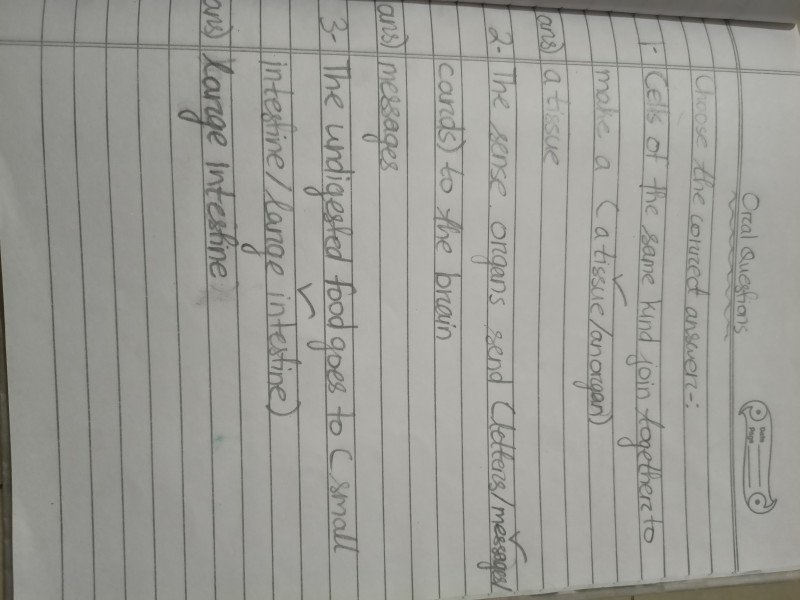 Oral Questions
Date
Page
Choose the correct answer:-
1- Cells of the same kind join together to
make a (a tissue/an organ)
ans) a tissue
2- The sense organs send (letters/messages/
cards) to the brain
ans) messages
3- The undigested food goes to (small
intestine/large intestine)
ans) large intestine